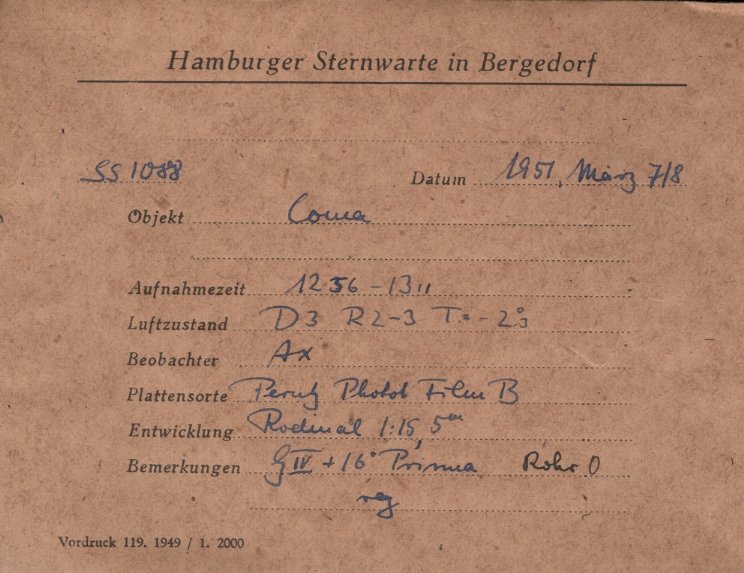 Hamburger Sternwarte in Bergedorf
SS 1088 Datum 1951, März 7/8
Objekt Coma
Aufnahmezeit 12 56 - 13 11
Luftzustand D3 R2-3 T=-2°3
Beobachter Ax
Plattensorte Perutz Photot Film B
Entwicklung Rodinal 1:15, 5m
Bemerkungen GIV +16° Prisma Rohr O
reg
Vordruck 119. 1949 / 1. 2000